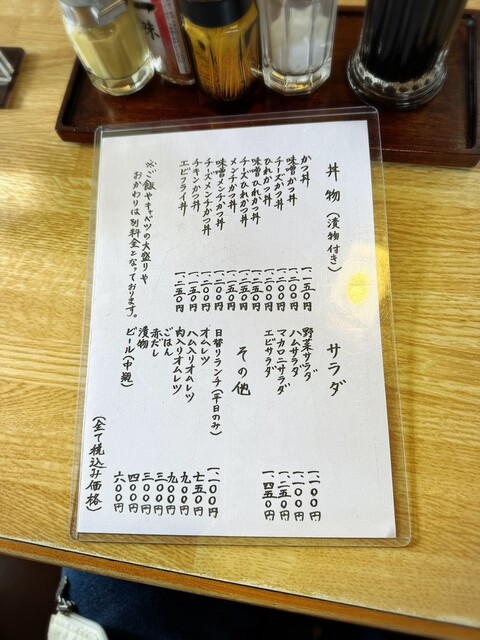 一味
丼物（漬物付き）
かつ丼 一、一五〇円
味噌かつ丼 一、二〇〇円
チーズかつ丼 一、二〇〇円
ひれかつ丼 一、二〇〇円
味噌ひれかつ丼 一、二五〇円
チーズひれかつ丼 一、二五〇円
メンチかつ丼 一、一五〇円
味噌メンチかつ丼 一、二〇〇円
チーズメンチかつ丼 一、二〇〇円
チキンかつ丼
エビフライ丼 一、二五〇円
※ご飯やキャベツの大盛りや
おかわりは別料金となっております。
サラダ
野菜サラダ 一、一〇〇円
ハムサラダ 一、一〇〇円
マカロニサラダ 一、二五〇円
エビサラダ 一、四五〇円
その他
日替りランチ（平日のみ） 一、一〇〇円
オムレツ 七五〇円
ハム入りオムレツ 九〇〇円
肉入りオムレツ 九〇〇円
ごはん 三〇〇円
赤だし 三〇〇円
漬物 四〇〇円
ビール（中瓶） 六〇〇円
（全て税込み価格）